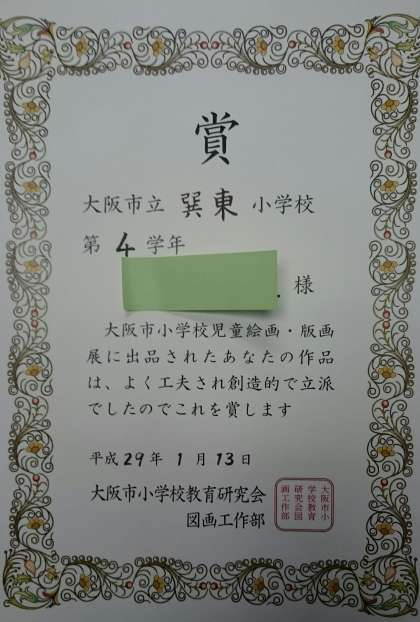 賞
大阪市立 巽東 小学校
第 4 学年
様
大阪市小学校児童絵画・版画
展に出品されたあなたの作品
は、よく工夫され創造的で立派
でしたのでこれを賞します
平成29年 1月13日
大阪市小学校教育研究会
図画工作部
大阪市小
学校教育
研究会図
画工作部